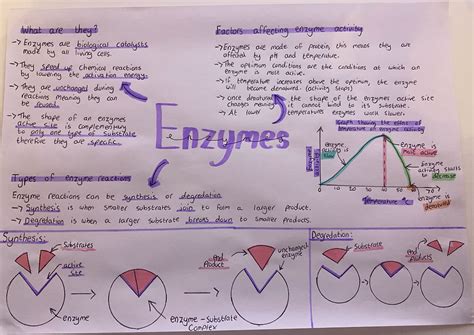 What are they?
→ Enzymes are biological catalysts
made by all living cells.
→ They speed up chemical reactions
by lowering the activation energy.
→ They are unchanged during
reactions meaning they can
be reused.
→ The shape of an enzymes
active site is complementary
to only one type of substrate
therefore they are specific.
Factors affecting enzyme activity
→ Enzymes are made of protein, this means they are
affected by pH and temperature.
→ The optimum conditions are the conditions at which an
enzyme is most active.
→ If temperature increases above the optimum, the enzyme
will become denatured. (activity stops)
→ once denatured, the shape of the enzymes active site
changes meaning it cannot bind to its substrate.
→ At lower temperatures enzymes work slower.
Enzymes
Graph showing the effect of
temperature of enzyme activity
enzyme activity
enzyme
activity is
slow
enzyme is
most active
enzyme
activity
starts to
decrease
0 10 20 30 40 50 60 70
temperature
enzyme is
denatured
Types of enzyme reactions
Enzyme reactions can be synthesis or degradation
→ Synthesis is when smaller substrates join to form a larger product.
→ Degradation is when a larger substrate breaks down to smaller products.
Synthesis:
Substrates
active
site
enzyme
enzyme-substrate
complex
End
Product
unchanged
enzyme
Degradation:
Substrate
End
Products